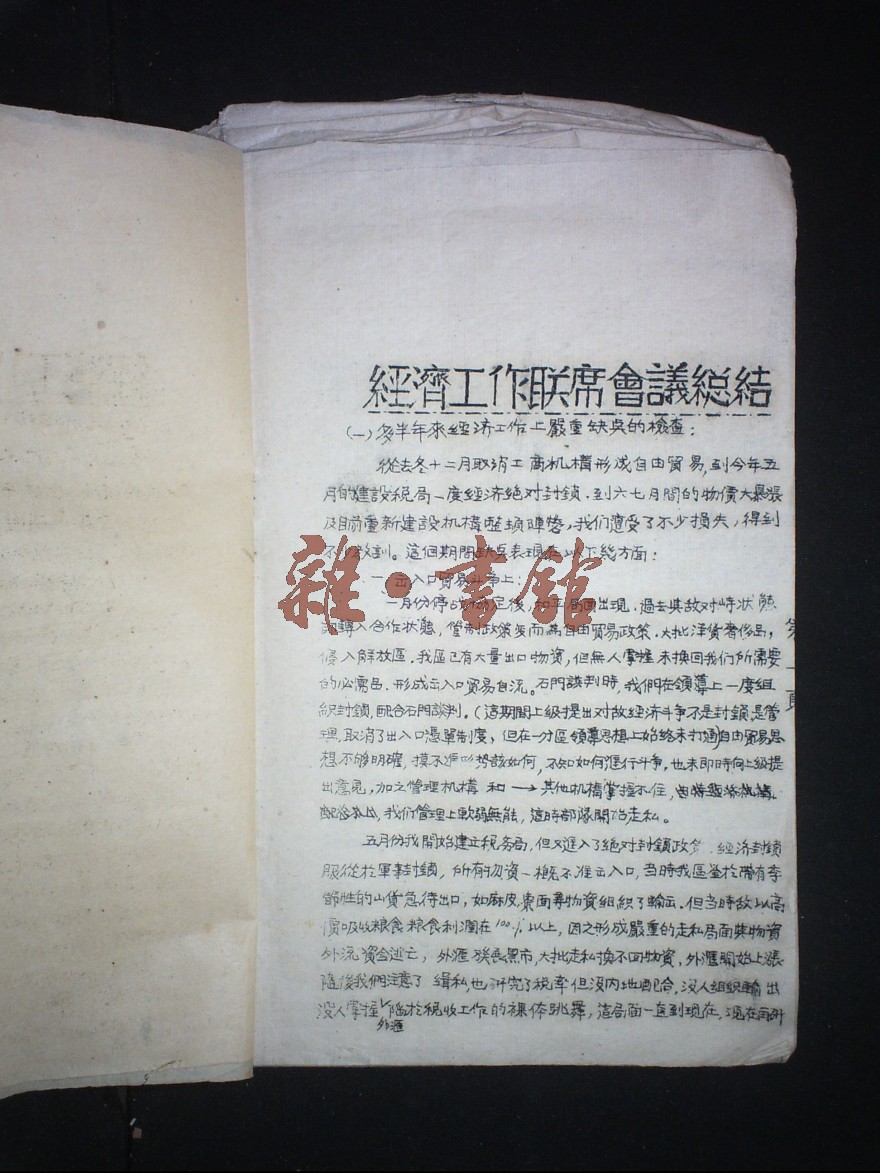 經濟工作联席會議総結
(一)多半年來經济工作上嚴重缺臭的檢查：
從去冬十二月取消工商机構形成自由貿易，到今年五
月的建設税局一度經济絶対封鎖．到六七月間的物價大暴漲
及目前重新建設机構整頓陣營，我们遭受了不少損失，得到
不少教訓。這個期間缺臭表現在以下幾方面：
一、出入口貿易斗爭上：
一月份停战協定後，和平局面出現．過去與敌対峙状態
調轉入合作状態，管制政策变而為自由貿易政策．大批洋貨奢侈品，
侵入解放區．我區已有大量出口物資，但無人掌握未換回我们所需要
的必需品．形成出入口貿易自流。石門談判時，我們在領導上一度組
織封鎖，配合石門談判．(這期間上級提出対敌經济斗爭不是封鎖是管
理，取消了出入口憑單制度，但在一分區領導思想上始终未打通)自由貿易思
想不够明確，摸不透形势該如何，不知如何進行斗爭，也未即時向上級提
出意見，加之管理机構 和 → 其他机構掌握不住，
我们管理上軟弱無能，這時部隊開始走私。
五月份我開始建立税务局，但又進入了絶対封鎖政策．經济封鎖
服從於軍事封鎖，所有物資一概不准出入口，当時我區堂於帶有季
節性的山貨急待出口，如麻皮，棗面尋物資組织了輸出．但当時敌以高
價吸收粮食粮食利潤在100%以上，因之形成嚴重的走私局面與物資
外流資金逃亡，外滙發展黑市，大批走私換不回物資，外滙開始上漲
隨後我們注意了緝私也研究了税率但没内地配合，没人組织輸出
没人掌握外滙陷於税收工作的裸体跳舞，這局面一直到現在，現在
第一頁
雜·書館